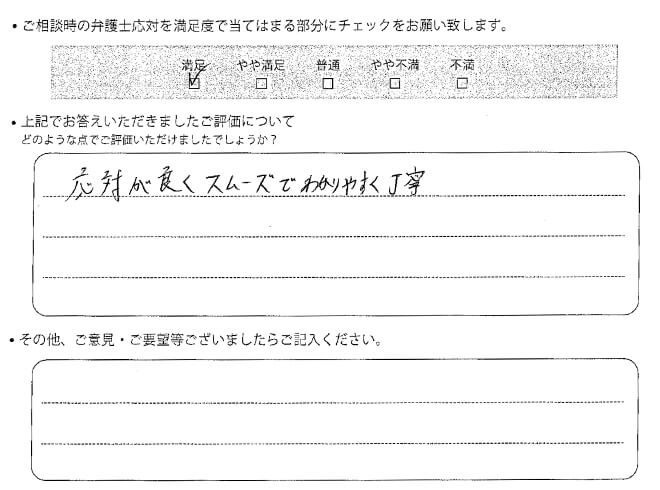 • ご相談時の弁護士応対を満足度で当てはまる部分にチェックをお願い致します。
満足 やや満足 普通 やや不満 不満
• 上記でお答えいただきましたご評価について
どのような点でご評価いただけましたでしょうか？
応対が良くスムーズでわかりやすく丁寧
• その他、ご意見・ご要望等ございましたらご記入ください。